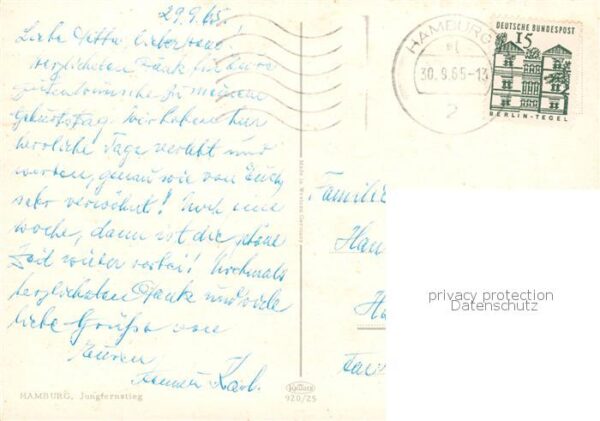 29.9.65.
Liebe
herzlichsten Dank für Eure
guten Wünsche zu meinem
Geburtstag. Wir haben hier
herrliche Tage verlebt und
werden, genau wie von Euch,
sehr verwöhnt! Noch eine
Woche, dann ist die schöne
Zeit wieder vorbei! Nochmals
herzlichsten Dank und viele
liebe Grüße von
Euren
Karl.
HAMBURG, Jungfernstieg
920/25
HAMBURG
30.9.65-13
2
DEUTSCHE BUNDESPOST
15
BERLIN-TEGEL
Familie
Han
Ha
privacy protection
Datenschutz